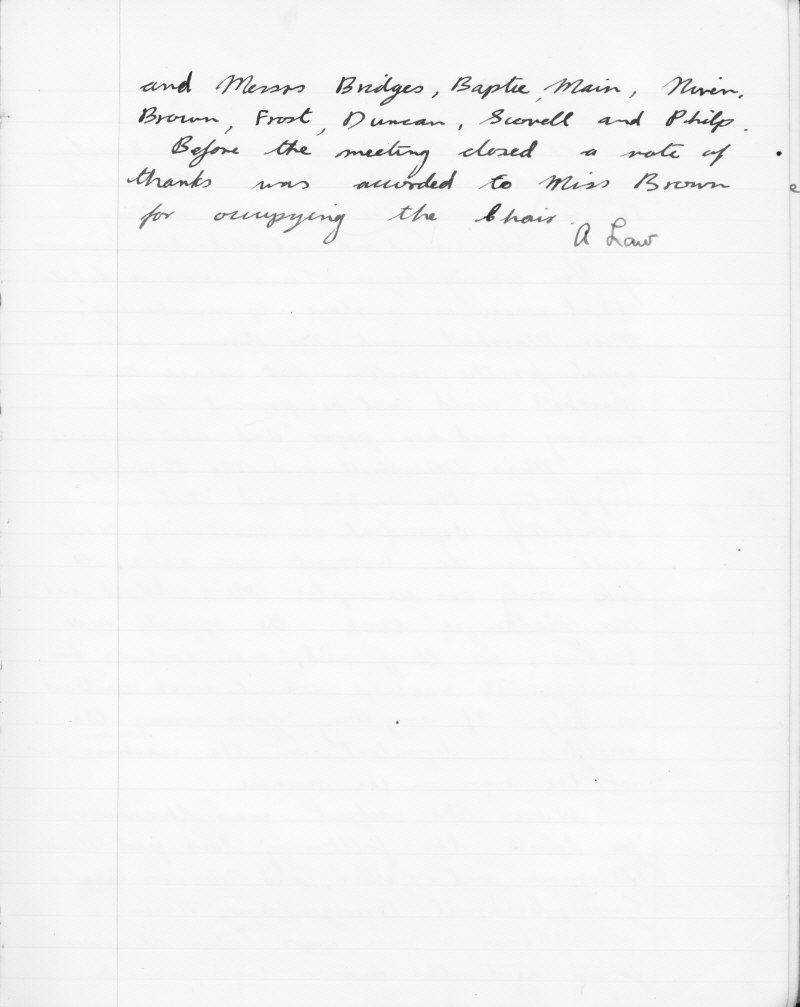 and Messrs Bridges, Baptie, Main, Niven,
Brown, Frost, Duncan, Scovell and Philp.
Before the meeting closed a vote of
thanks was accorded to Miss Brown
for occupying the Chair.
A Law